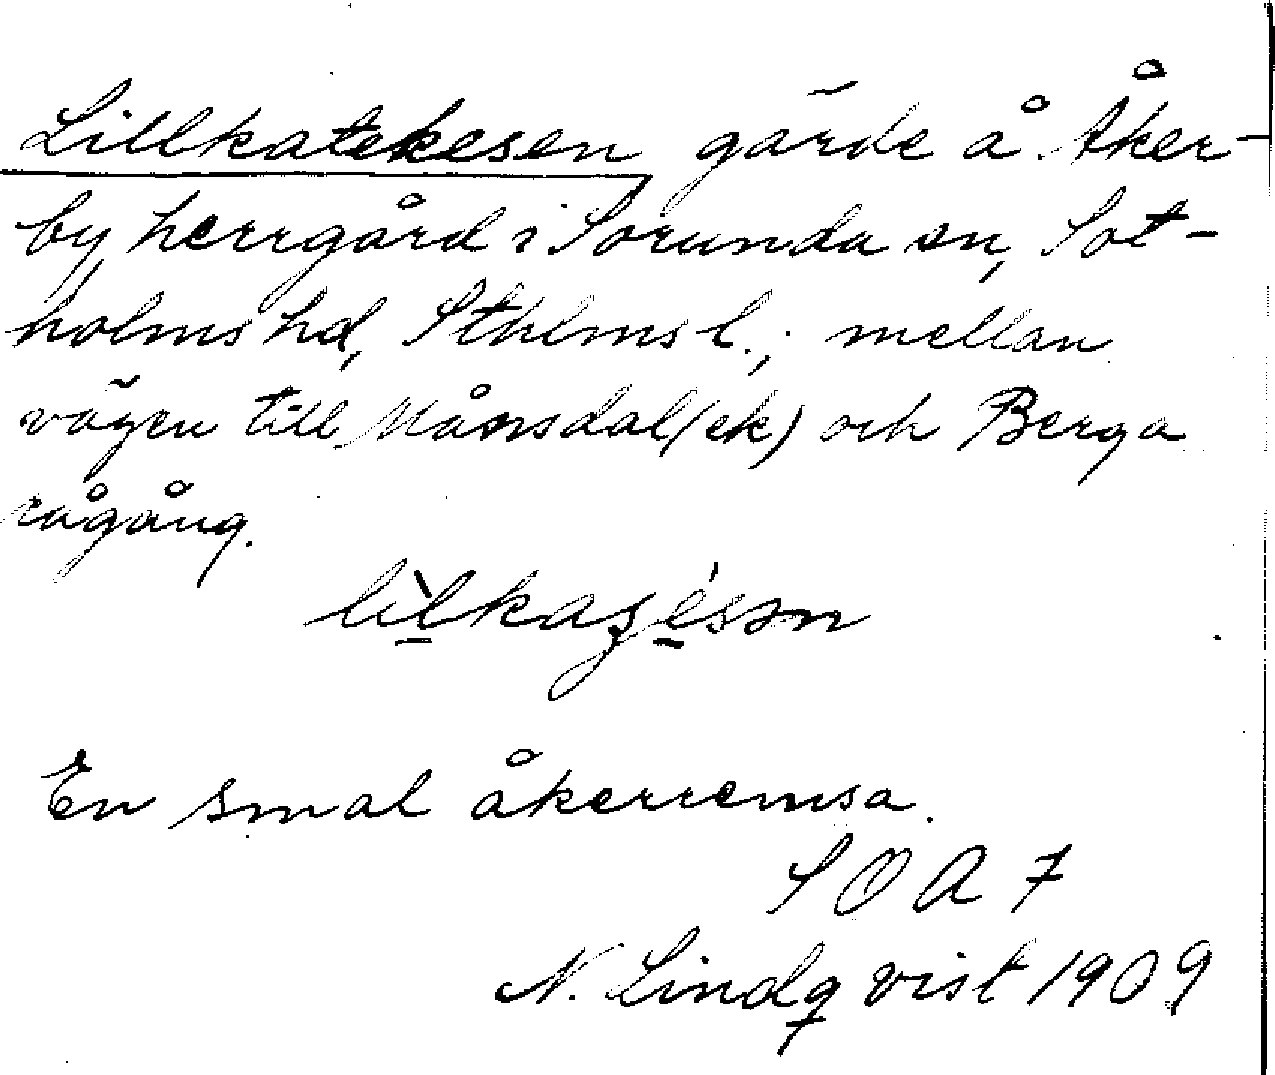 Lillkatekesen gärde å Åker-
by herrgård i Sorunda sn, Sot-
holms hd, Sthlms l.; mellan
vägen till Månsdal (ek) och Berga
rågång.
En smal åkerremsa.
S O A 7
N. Lindqvist 1909